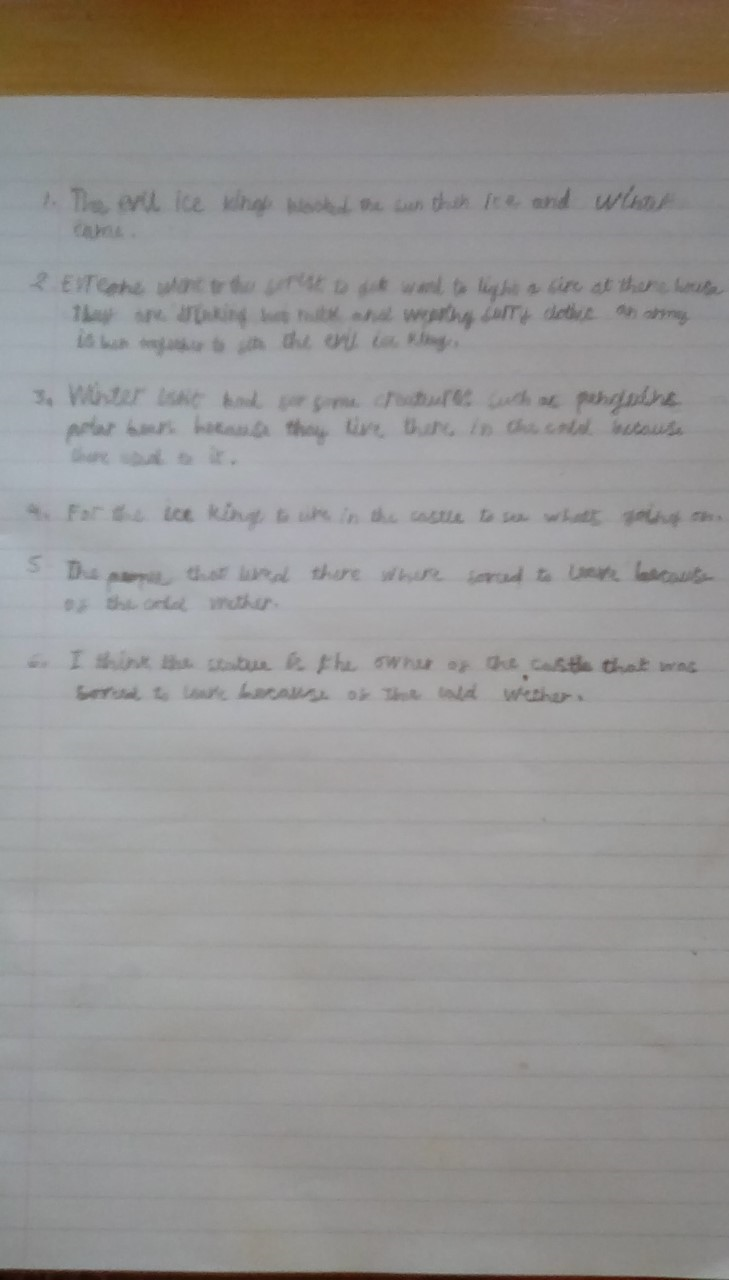 1. The evil ice kings blocked the sun then ice and
came.
2 went to the to get wood to light a fire at there house
They are drinking hot milk and wearing furry clothe an army
is together to the evil ice king.
3. Winter isnt bad for some creatures such as penguins
polar bears because they live there in the cold because
there used to it.
4. For the ice kings to live in the castle to see whats going on.
5 The people that lived there where forced to leave because
of the cold wether.
6. I think the statue is the owner of the castle that was
forced to leave because of the cold wether.